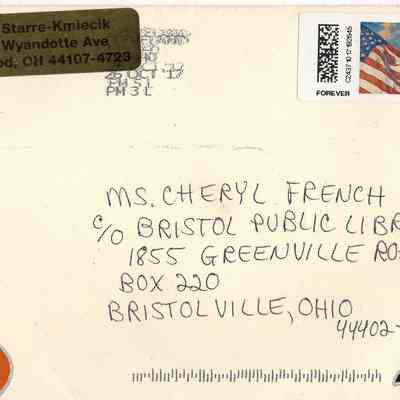 Starre-Kmiecik
Wyandotte Ave
od, OH 44107-4723
26 OCT '17
PM 3 L
FOREVER
C2437 10 17 192645
MS. CHERYL FRENCH
c/o BRISTOL PUBLIC LIBR
1855 GREENVILLE RO
BOX 220
BRISTOLVILLE, OHIO
44402-